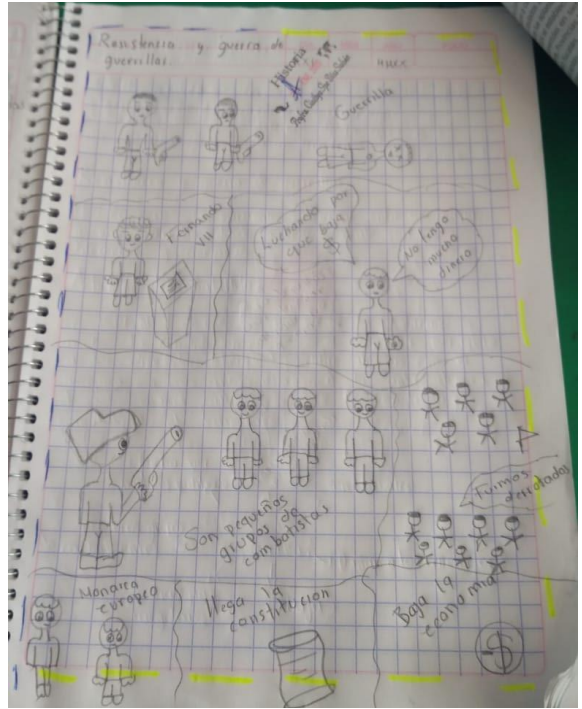 Resistencia y guerra de
guerrillas.
Historia
Guerrilla
Fernando
VII
Luchando por
que baja
$
No tengo
mucho
dinero
Son pequeños
grupos de
combatistas
Fuimos
derrotados
Monarca
europeo
llega la
constitucion
Baja la
economia
$